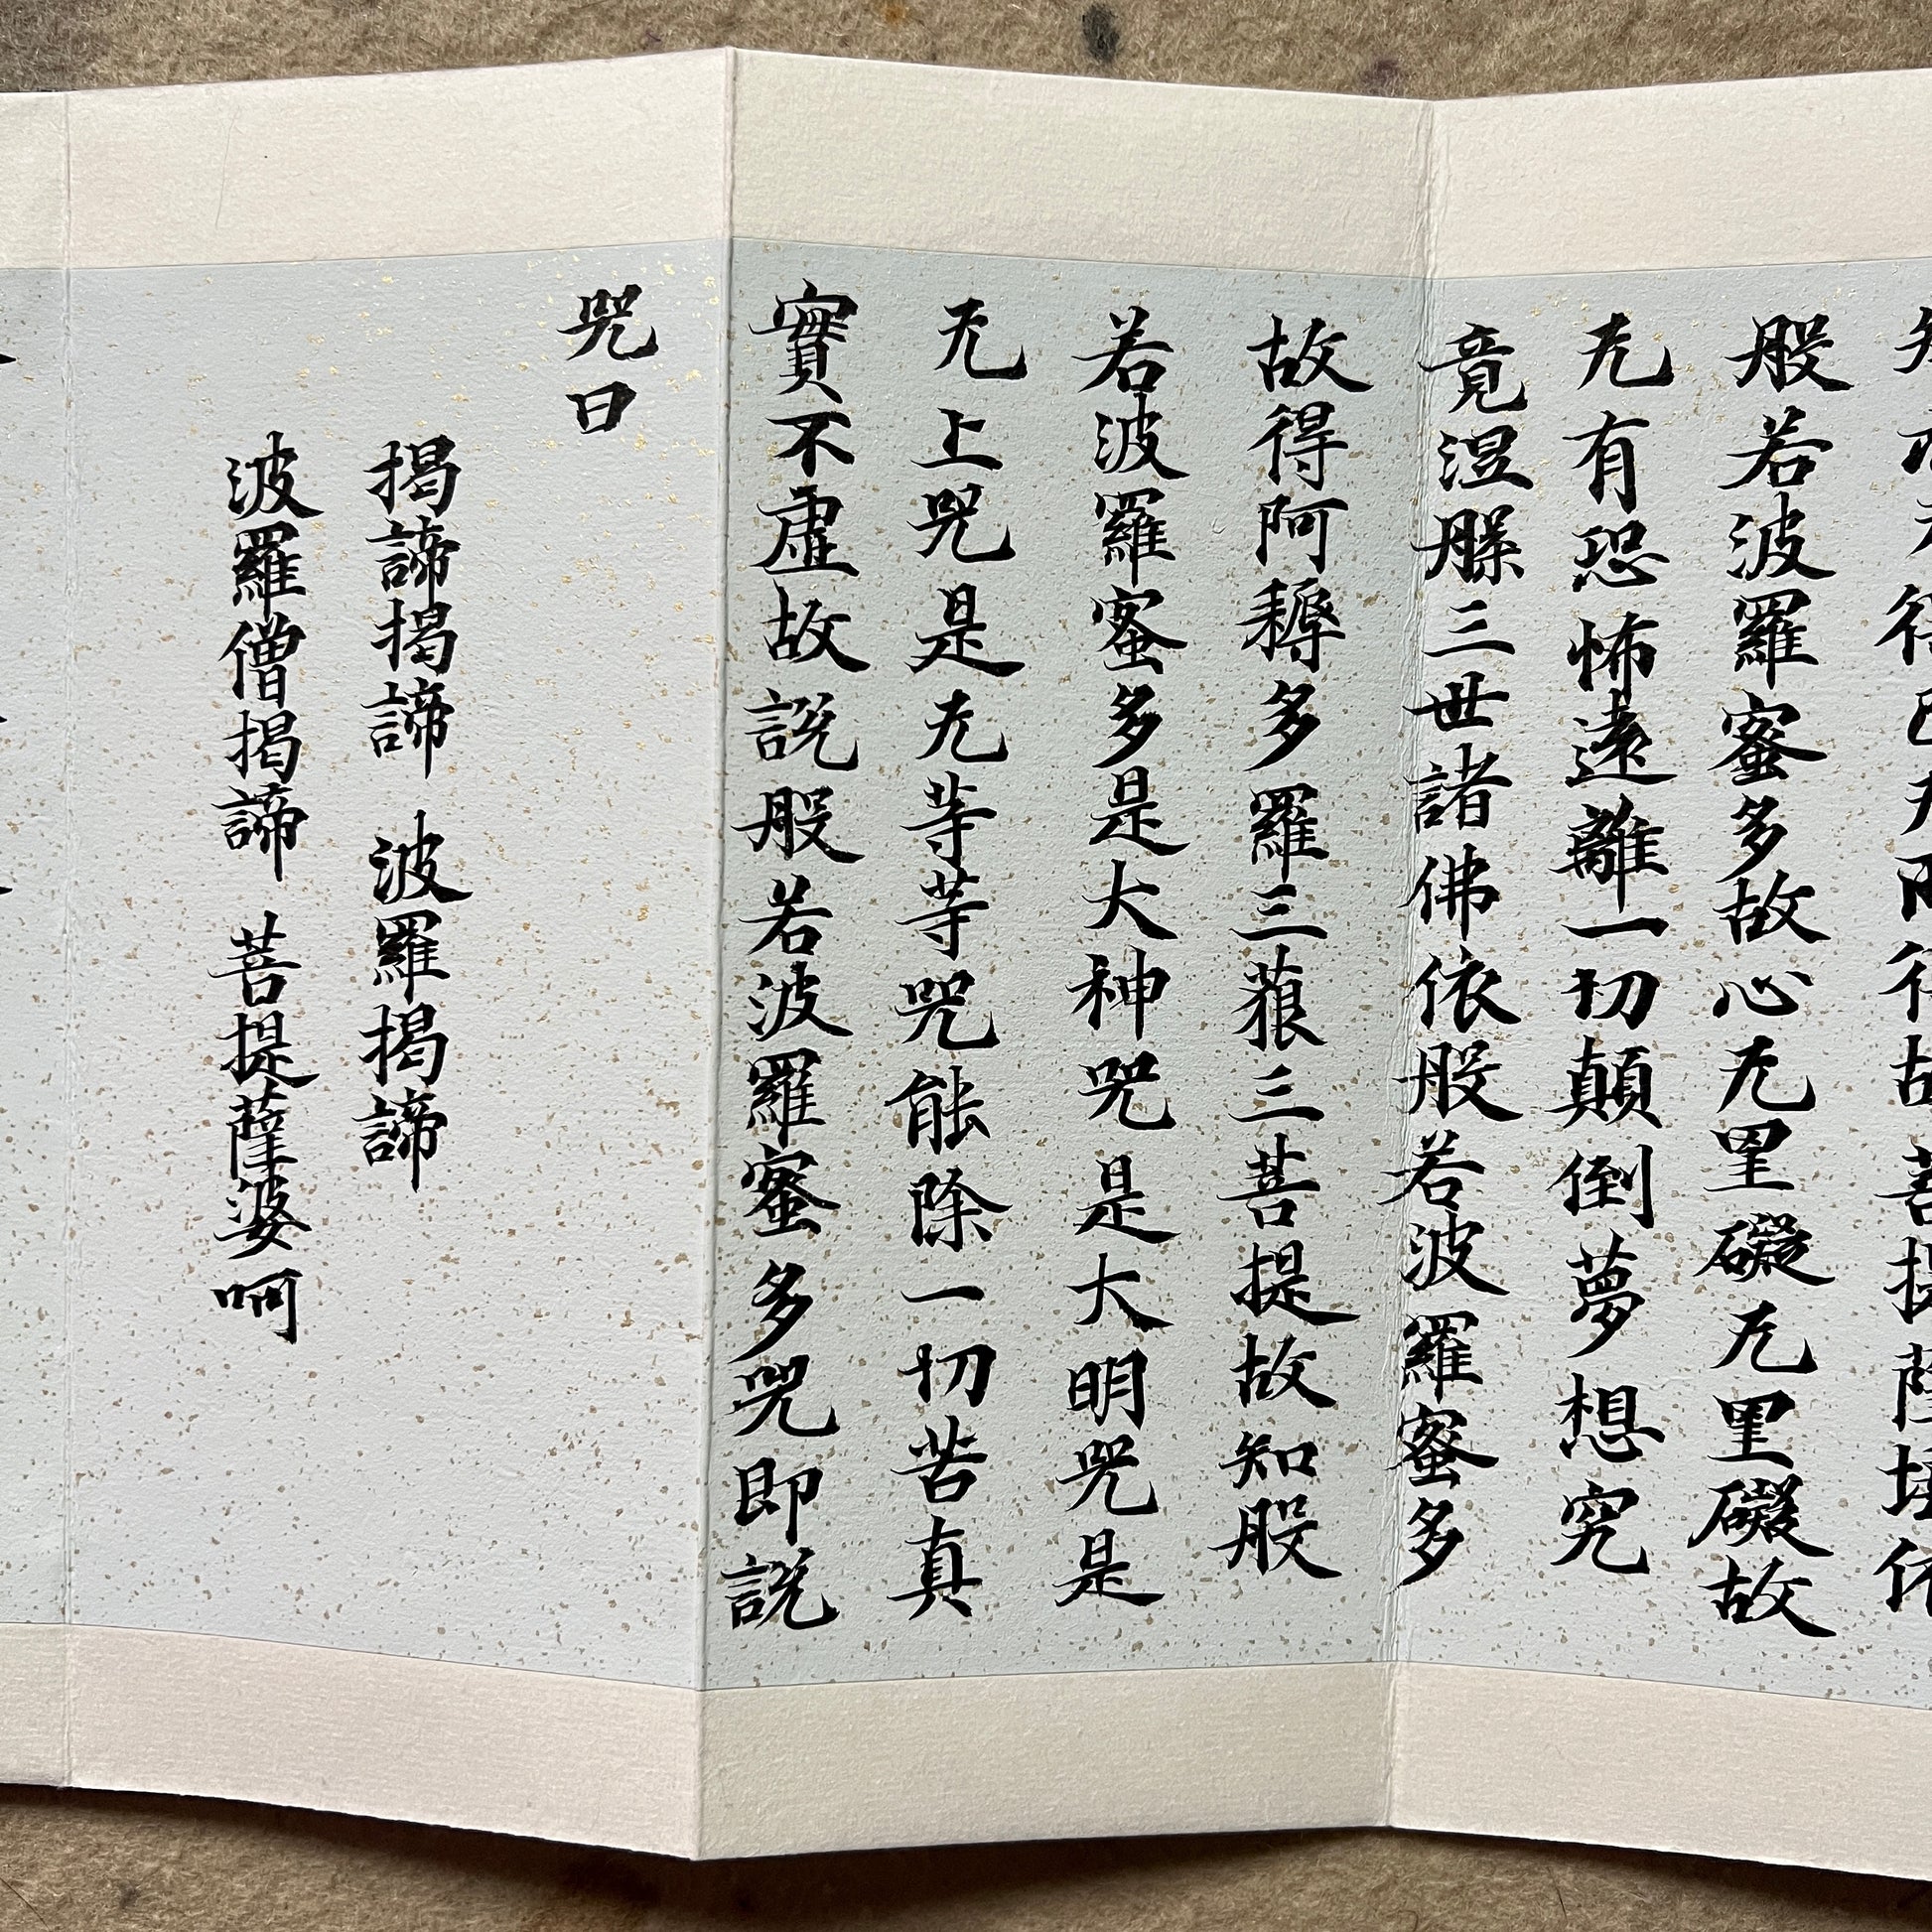 般若波羅蜜多故心无罣礙无罣礙故
无有恐怖遠離一切顛倒夢想究
竟涅槃三世諸佛依般若波羅蜜多
故得阿耨多羅三藐三菩提故知般
若波羅蜜多是大神咒是大明咒是
无上咒是无等等咒能除一切苦真
實不虛故說般若波羅蜜多咒即說
咒曰
揭諦揭諦 波羅揭諦
波羅僧揭諦 菩提薩婆呵